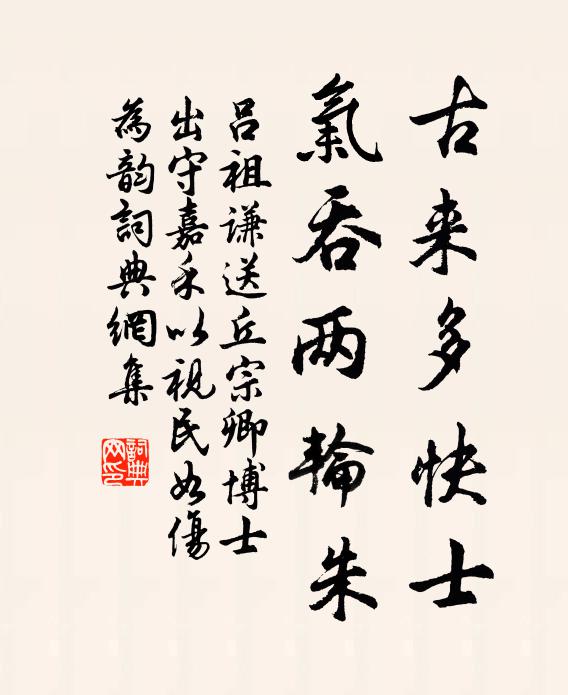 古来多快士
氣吞两輪朱
吕祖谦送丘宗卿博士
出守嘉禾以視民如傷
為韵詞典網集
詞典
网印